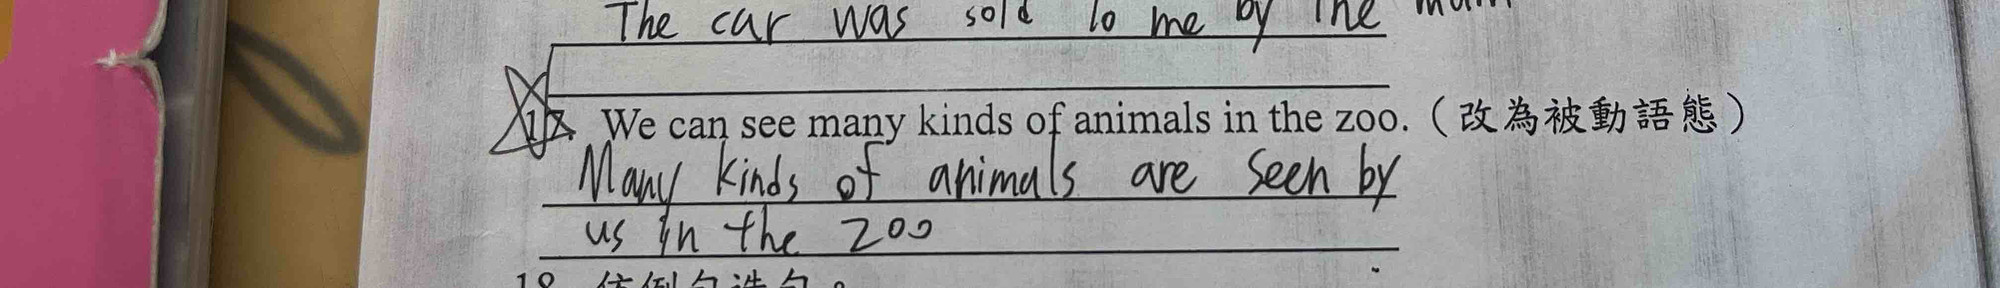 The car was sold to me by the
17. We can see many kinds of animals in the zoo.（改為被動語態）
Many kinds of animals are seen by
us in the zoo
18. 仿例句造句。